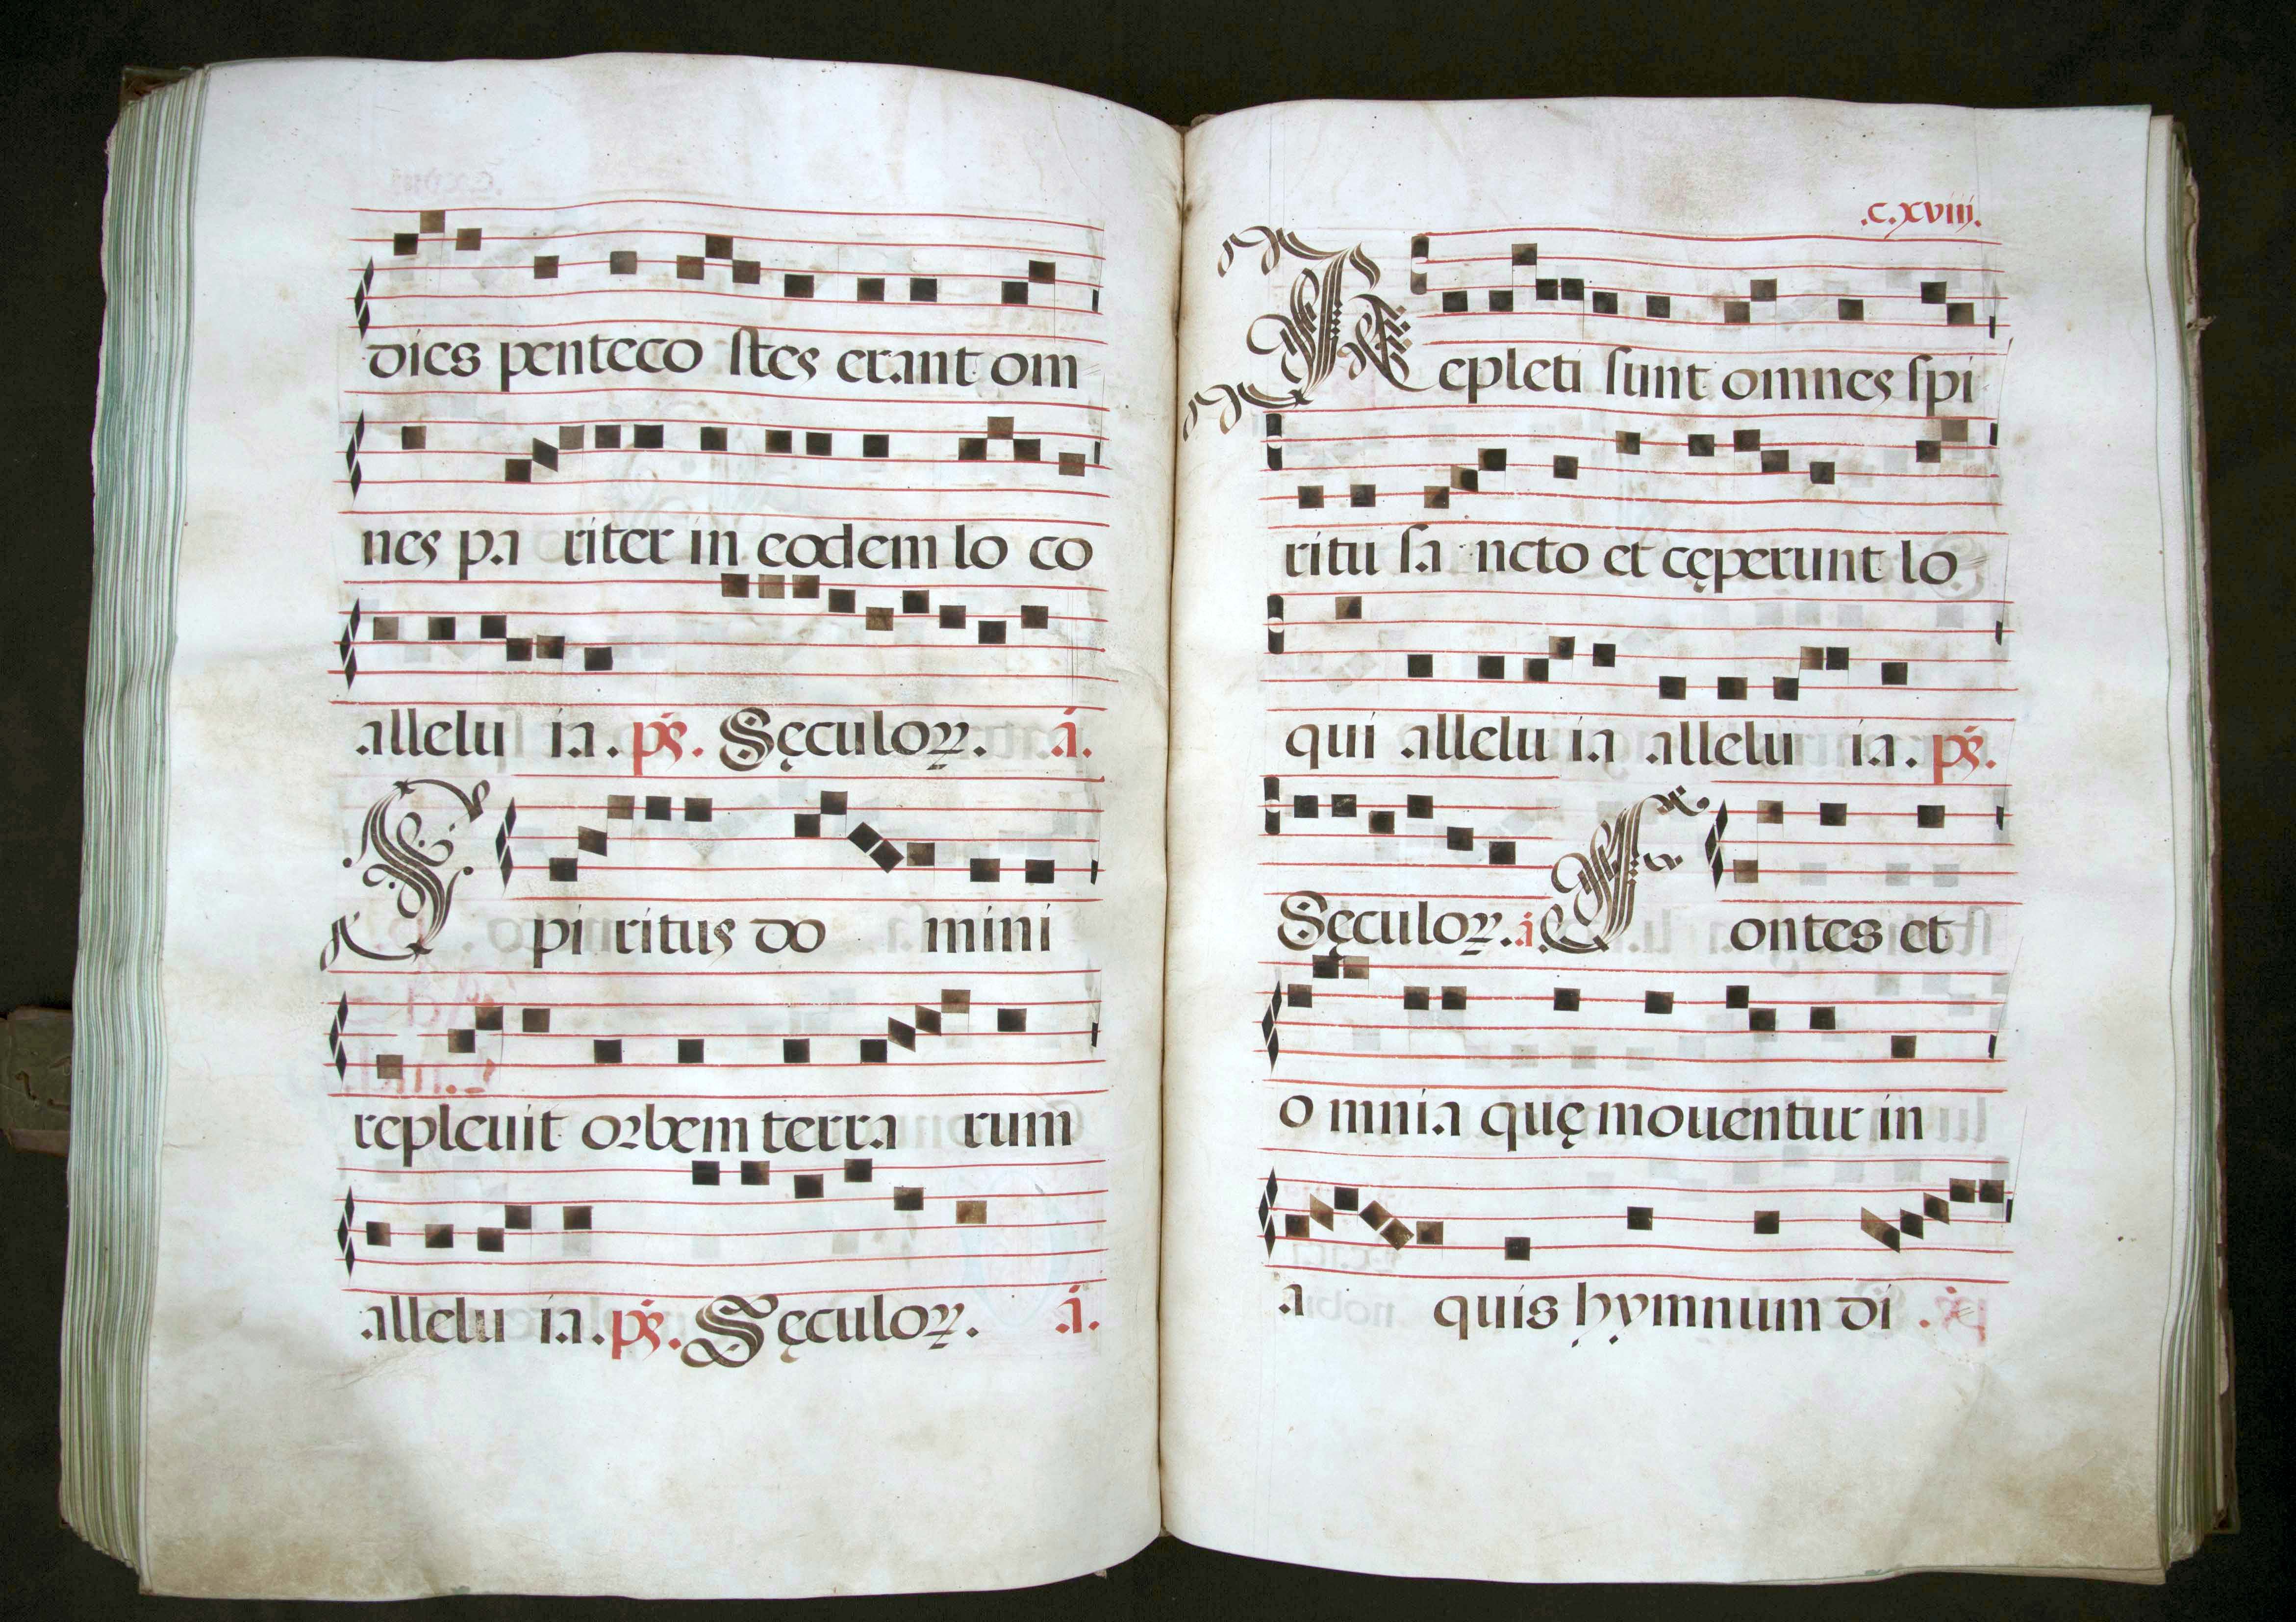 dies penteco ſtes erant om
nes pa riter in eodem lo co
allelu ia. ps. Sęculoꝝ. a.
Spi ritus do mini
repleuit orbem terra rum
allelu ia. ps. Sęculoꝝ. a.
.c.xviij.
Repleti ſunt omnes ſpi
ritu ſa ncto et cęperunt lo
qui allelu ia allelu ia. ps.
Sęculoꝝ. a. Fontes et
o mnia quę mouentur in
a quis hymnum di